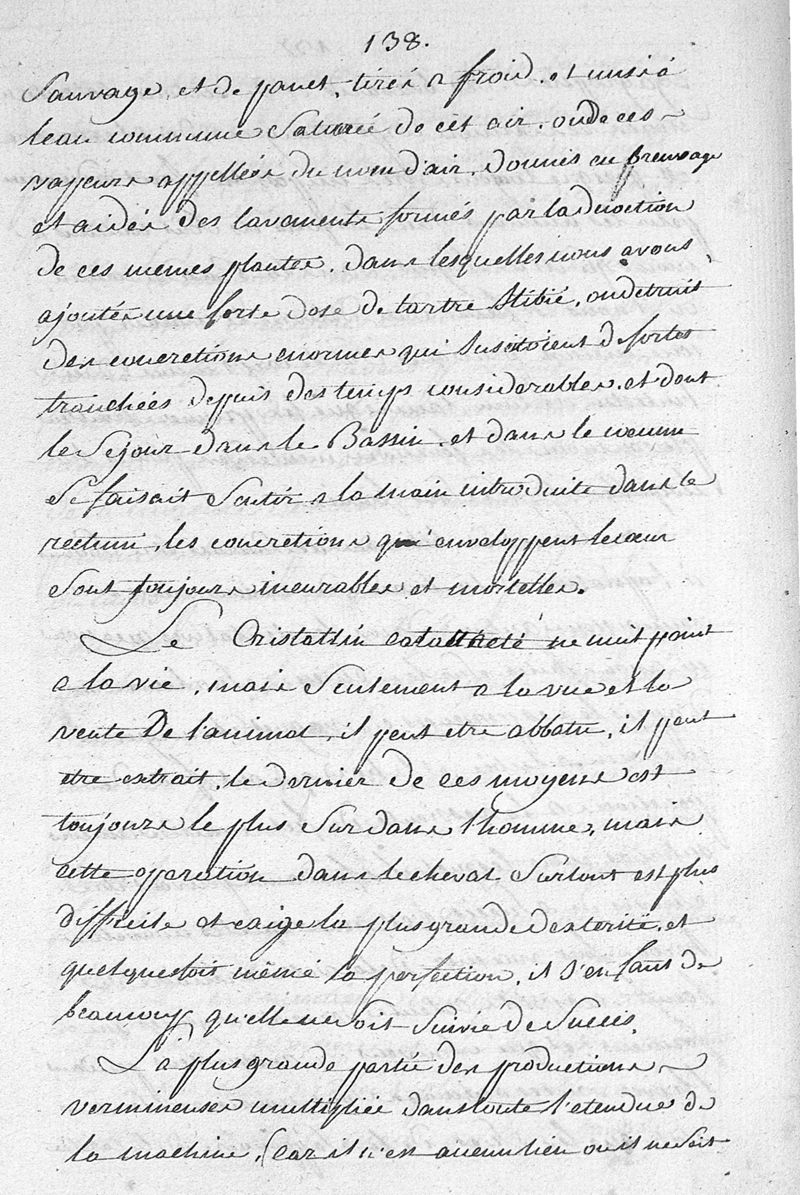 138.
Sauvage, et de panet, tirés a froid, et unis á
leau commune Saturée de cet air, ou de ces
vapeurs appellées du nom d'air, donnés en breuvage
et aidés des lavaments formés par la decoction
de ces memes plantes, dans lesquelles nous avons
ajoutés une forte dose de tartre Stibié, on detruit
des concretions enormes qui Suscitoient de fortes
tranchées depuis des temps considerables, et dont
le Sejour dans le Bassin, et dans le coecum
Se faisait Sentir a la main introduite dans le
rectum, les concretions qui enveloppent le coeur
Sont toujours incurables et mortelles.
Le Cristallin catarhacté ne nuit point
a la vie, mais Seulement a la vue et la
vente De l'animal, il peut etre abbatu, il peut
etre extrait, le dernier de ces moyens est
toujours le plus Sur dans l'homme, mais
cette operation dans le cheval Surtout est plus
difficile et exige la plus grande dexterité, et
quelquefois même la perfection, il S'en faut de
beaucoup qu'elle ne soit Suivie de Succès.
La plus grande partie des productions
vermineuses multipliée dans toute l'etendue de
la machine, (car il n'est aucun lieu ou il ne soit